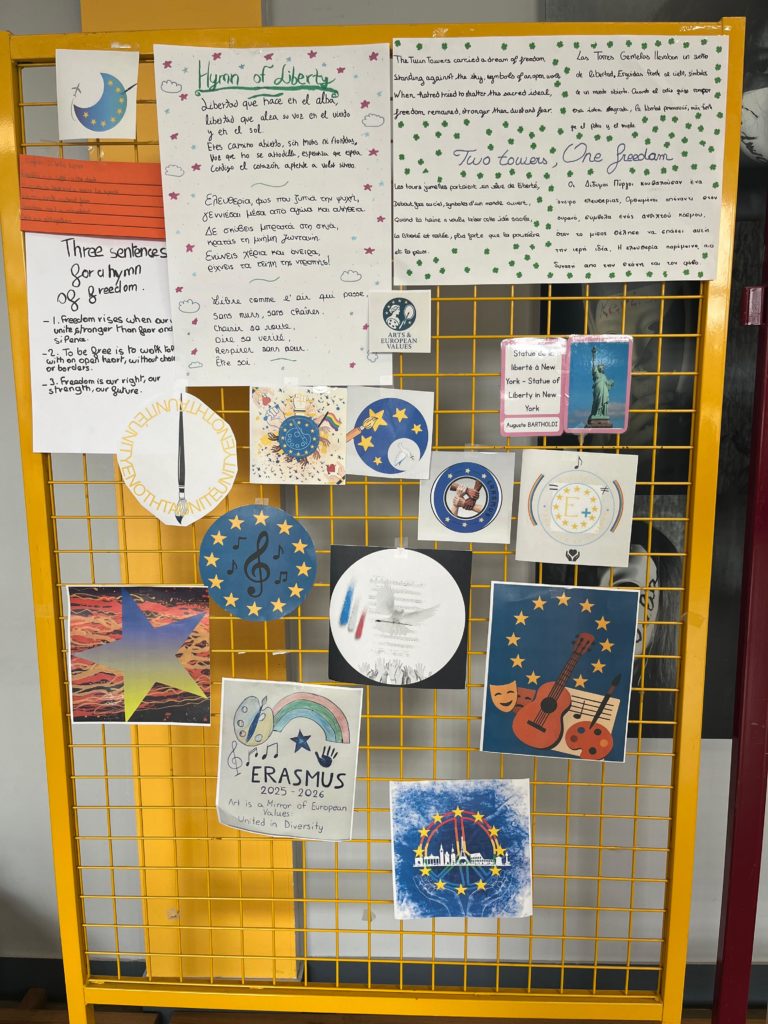 Hymn of Liberty
Libertad que nace en el alba,
libertad que alza su voz en el viento
y en el sol.
Eres camino abierto, sin muros ni fronteras,
Voz que no se arrodilla, esperanza que espera
Contigo el corazón aprende a volar
Ελευθερία, φως που ξυπνά την ψυχή,
γεννιέσαι μέσα από αγώνα και
Δε σκύβεις μπροστά στη σκιά,
κρατάς τη μνήμη ζωντανή.
Ενώνεις χέρια και όνειρα,
Libre comme l'air qui passe,
Sans murs, sans chaînes.
Choisir sa route,
Dire sa vérité,
Respirer sans peur.
Être soi.
The Twin Towers carried a dream of freedom
Standing against the sky, symbols of an open world
When hatred tried to shatter this sacred ideal,
freedom remained, stronger than dust and fear.
Las Torres Gemelas llevaban un sueño
de libertad, Erguidas frente al cielo, símbolos
de un mundo abierto. Cuando el odio quiso romper
esa idea sagrada, la libertad permaneció, más fuerte
que el polvo y el miedo.
Two towers, One freedom
Les tours jumelles portaient un rêve de liberté,
Debout face au ciel, symboles d'un monde ouvert,
Quand la haine a voulu briser cette idée sacrée,
La liberté est restée, plus forte que la poussière
et la peur.
Οι Δίδυμοι Πύργοι κουβαλούσαν ένα
όνειρο ελευθερίας, Ορθωμένοι απέναντι στον
ουρανό, σύμβολα ενός ανοιχτού κόσμου,
όταν το μίσος θέλησε να σπάσει αυτή
την ιερή ιδέα, Η ελευθερία παρέμεινε, πιο
δυνατή από την σκόνη και τον φόβο
Three sentences
for a hymn
of freedom.
-1. Freedom rises when our
unite stronger than fear and
silence.
-2. To be free is to walk
with an open heart, without
or borders.
-3. Freedom is our right, our
strength, our future.
ARTS &
EUROPEAN
VALUES
Statue de la
liberté à New
York - Statue of
Liberty in New
York
Auguste BARTHOLDI
E+
ERASMUS
2025 - 2026
Art is a Mirror of European
Values:
United in Diversity